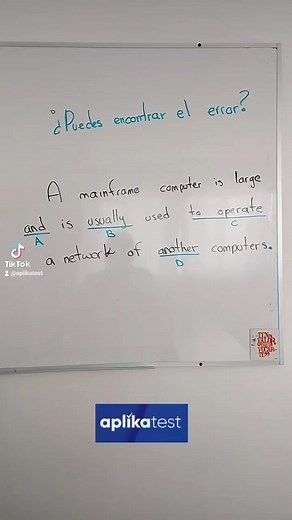 ¿Puedes encontrar el error?
A mainframe computer is large
and is usually used to operate
A B C
a network of another computers.
D
TikTok
@aplikatest
aplikatest